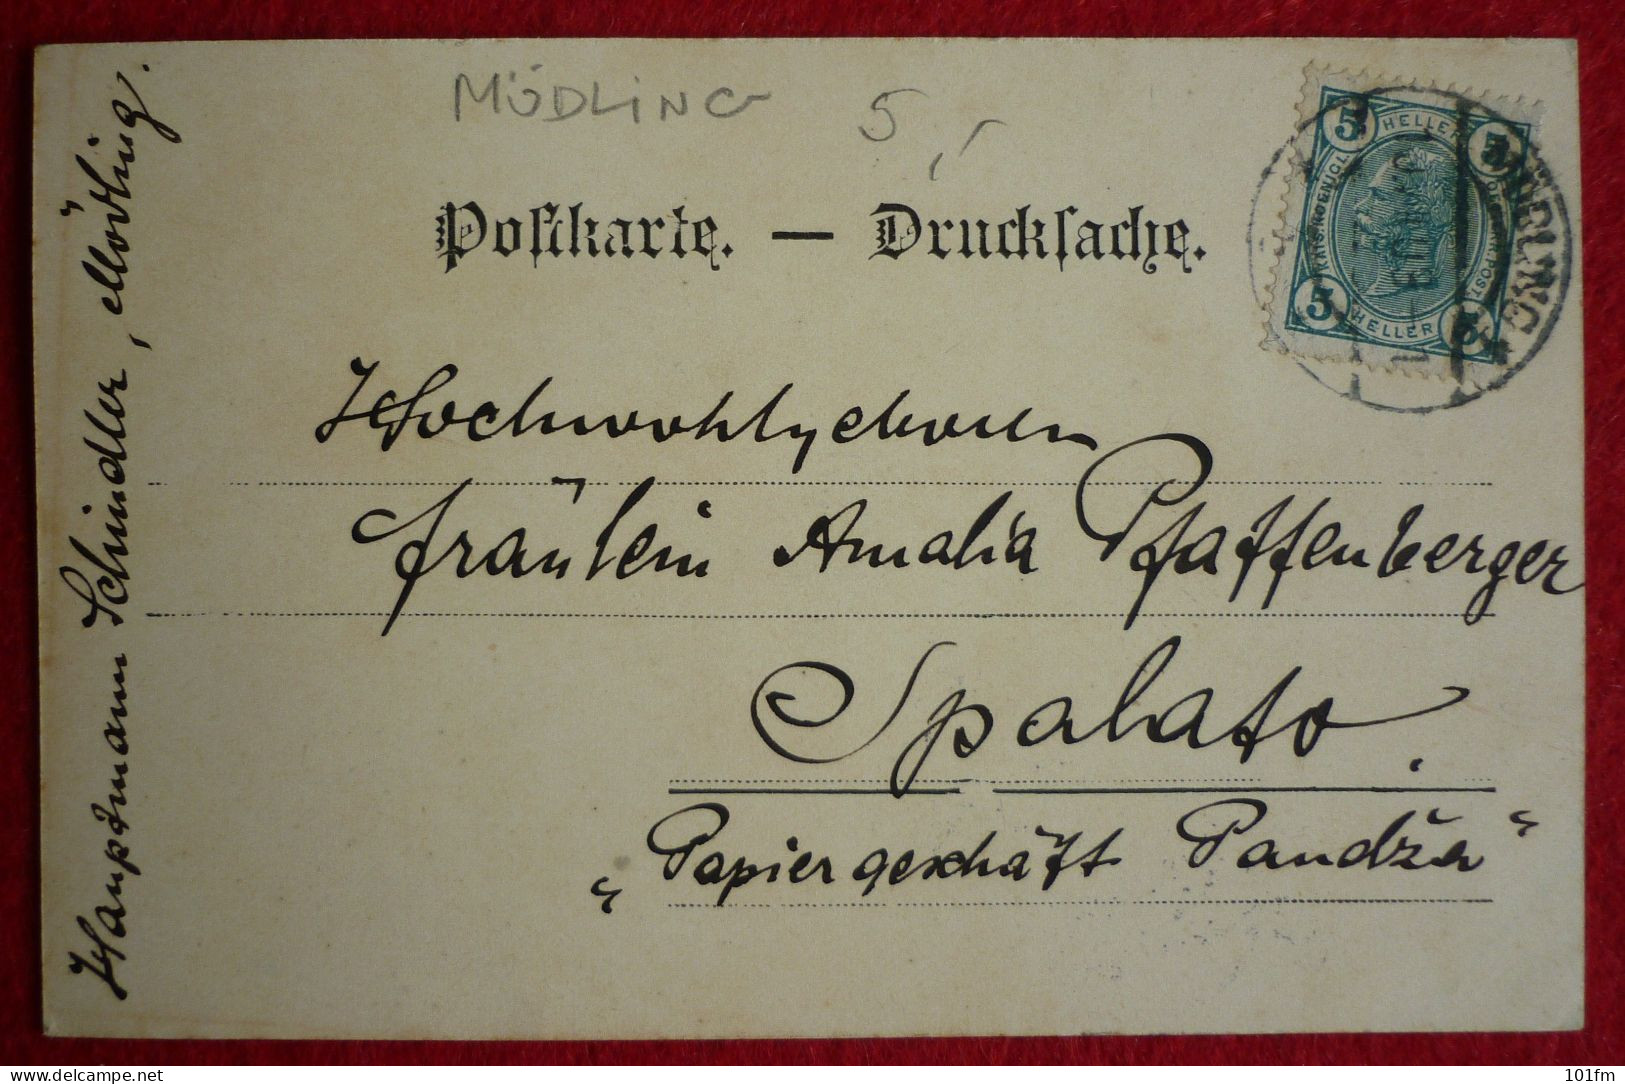 MÖDLING 5,-
Postkarte. — Drucksache.
5 HELLER 5
5 HELLER 5
MÖDLING
Hochwohlgeboren
Fräulein Amalia Pfaffenberger
Spalato.
„Papiergeschäft Pandža“
Hauptmann Schindler, Mödling.
delcampe.net
101fm